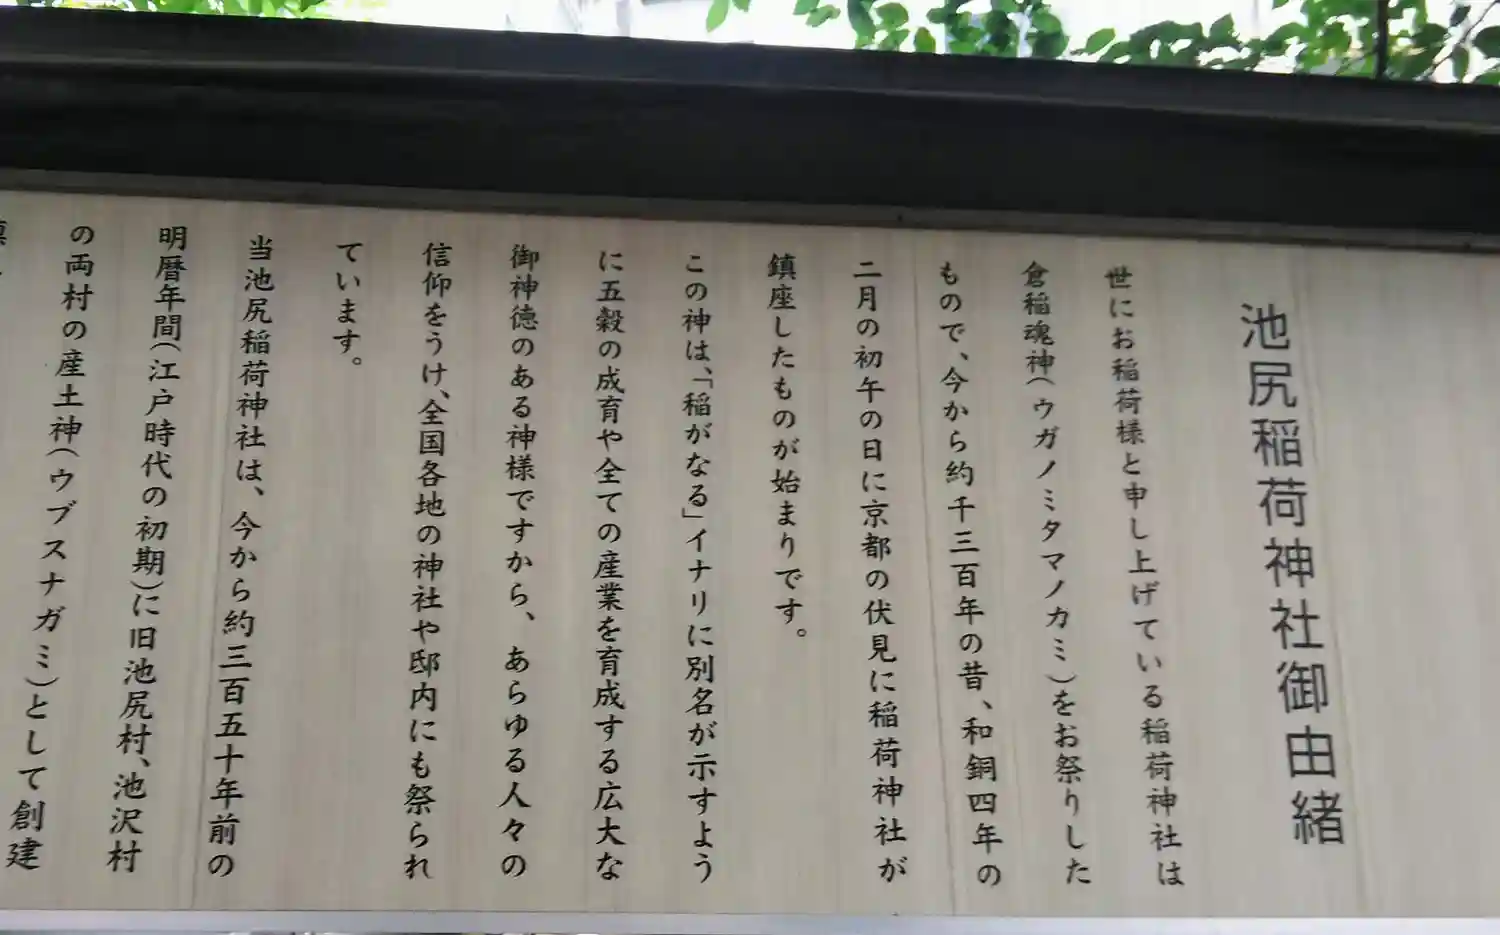 池尻稲荷神社御由緒
世にお稲荷様と申し上げている稲荷神社は
倉稲魂神（ウガノミタマノカミ）をお祭りした
もので、今から約千三百年の昔、和銅四年の
二月の初午の日に京都の伏見に稲荷神社が
鎮座したものが始まりです。
この神は、「稲がなる」イナリに別名が示すよう
に五穀の成育や全ての産業を育成する広大な
御神徳のある神様ですから、あらゆる人々の
信仰をうけ、全国各地の神社や邸内にも祭られ
ています。
当池尻稲荷神社は、今から約三百五十年前の
明暦年間（江戸時代の初期）に旧池尻村、池沢村
の両村の産土神（ウブスナガミ）として創建